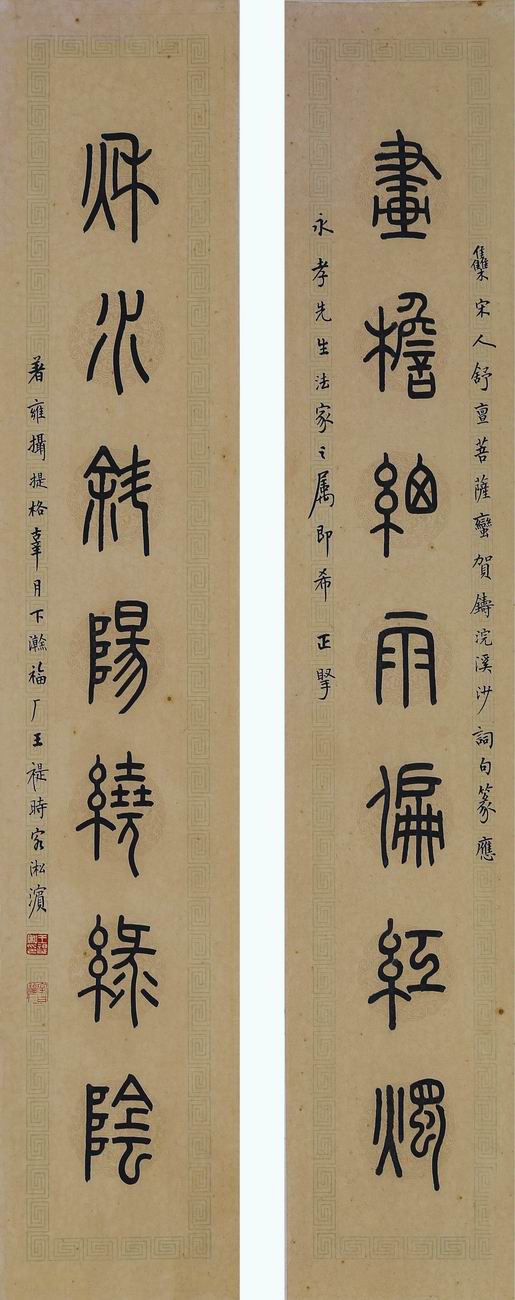 雧宋人舒亶菩薩蠻賀鑄浣溪沙詞句篆應
畫檐細雨偏紅燭
永孝先生法家之属即希 正掔
秌水斜陽繞綠陰
著雍攝提格辜月下澣福厂王禔時客淞濱